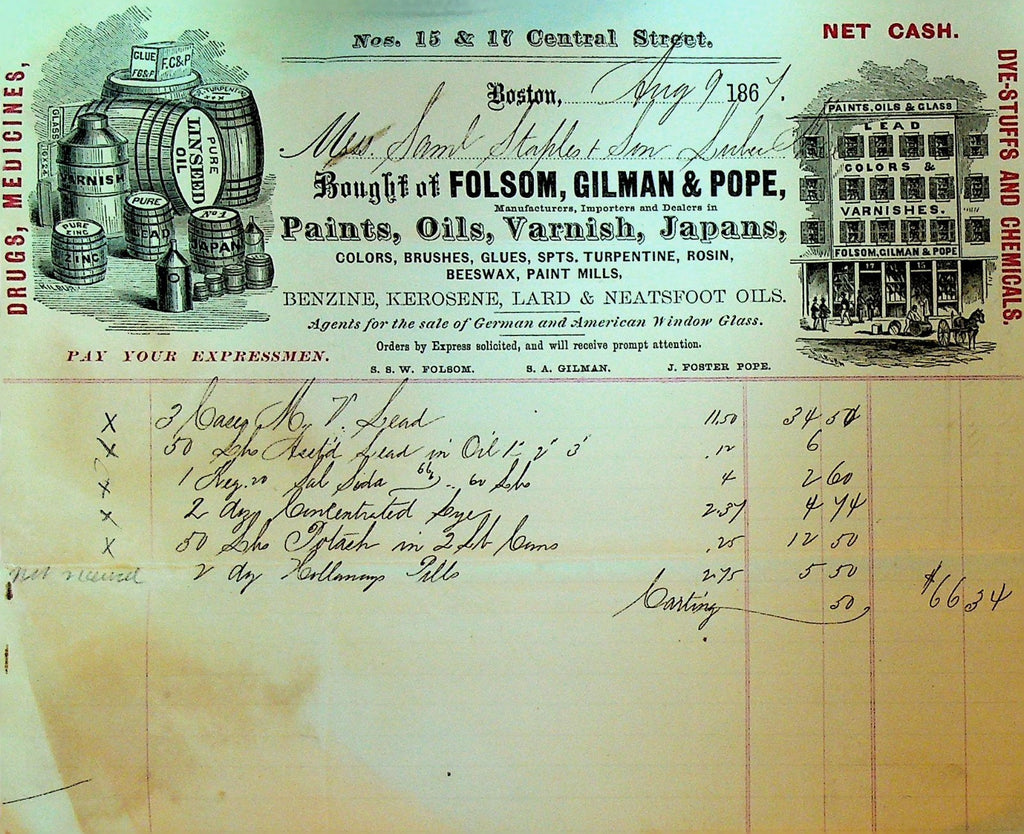 Nos. 15 & 17 Central Street.
NET CASH.
DRUGS, MEDICINES,
DYE-STUFFS AND CHEMICALS.
GLUE
F.G&P
F.G&P
TURPENTINE
PURE
LINSEED
OIL
GLASS
VARNISH
PURE
LEAD
No 1
JAPAN
PURE
ZINC
ZINC
KILBURN
Boston, Aug 9 1867.
Mess. Saml Staples & Son
Bought of FOLSOM, GILMAN & POPE,
Manufacturers, Importers and Dealers in
Paints, Oils, Varnish, Japans,
COLORS, BRUSHES, GLUES, SPTS. TURPENTINE, ROSIN,
BEESWAX, PAINT MILLS,
BENZINE, KEROSENE, LARD & NEATSFOOT OILS.
Agents for the sale of German and American Window Glass.
Orders by Express solicited, and will receive prompt attention.
S. S. W. FOLSOM. S. A. GILMAN. J. FOSTER POPE.
PAINTS, OILS & GLASS
LEAD
COLORS &
VARNISHES.
FOLSOM, GILMAN & POPE
17 15
PAY YOUR EXPRESSMEN.
x 3 Lead 11.50 34 50
x 50 Lbs Lead in Oil 1 2 3 .12 6
x 1 Keg 20 Sal Soda 60 Lbs 4 2 60
x 2 doz Concentrated Lye 2.37 4 74
x 50 Lbs Potash in 2 Lb Cans .25 12 50
not received 2 dz Holloways Pills 2.75 5 50
Carting 50 $66 34